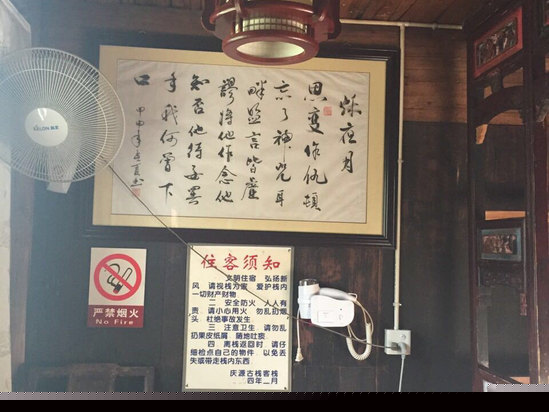 秋夜月
恩變作仇頓
忘了神咒耳
畔盟言皆虛
謬將他作念他
知否他待要罢
手我何曾下
口
甲申年
KELON
严禁烟火
No Fire
住客须知
一 文明住宿 弘扬新
风 请视栈为家 爱护栈内
一切财产财物
二 安全防火 人人有
责 请小心用火 勿乱扔烟
头 杜绝事故发生
三 注意卫生 请勿乱
扔果皮纸屑 随地吐痰
四 离栈返回时 请仔
细检点自己的物件 以免丢
失或带走栈内东西
庆源古栈客栈